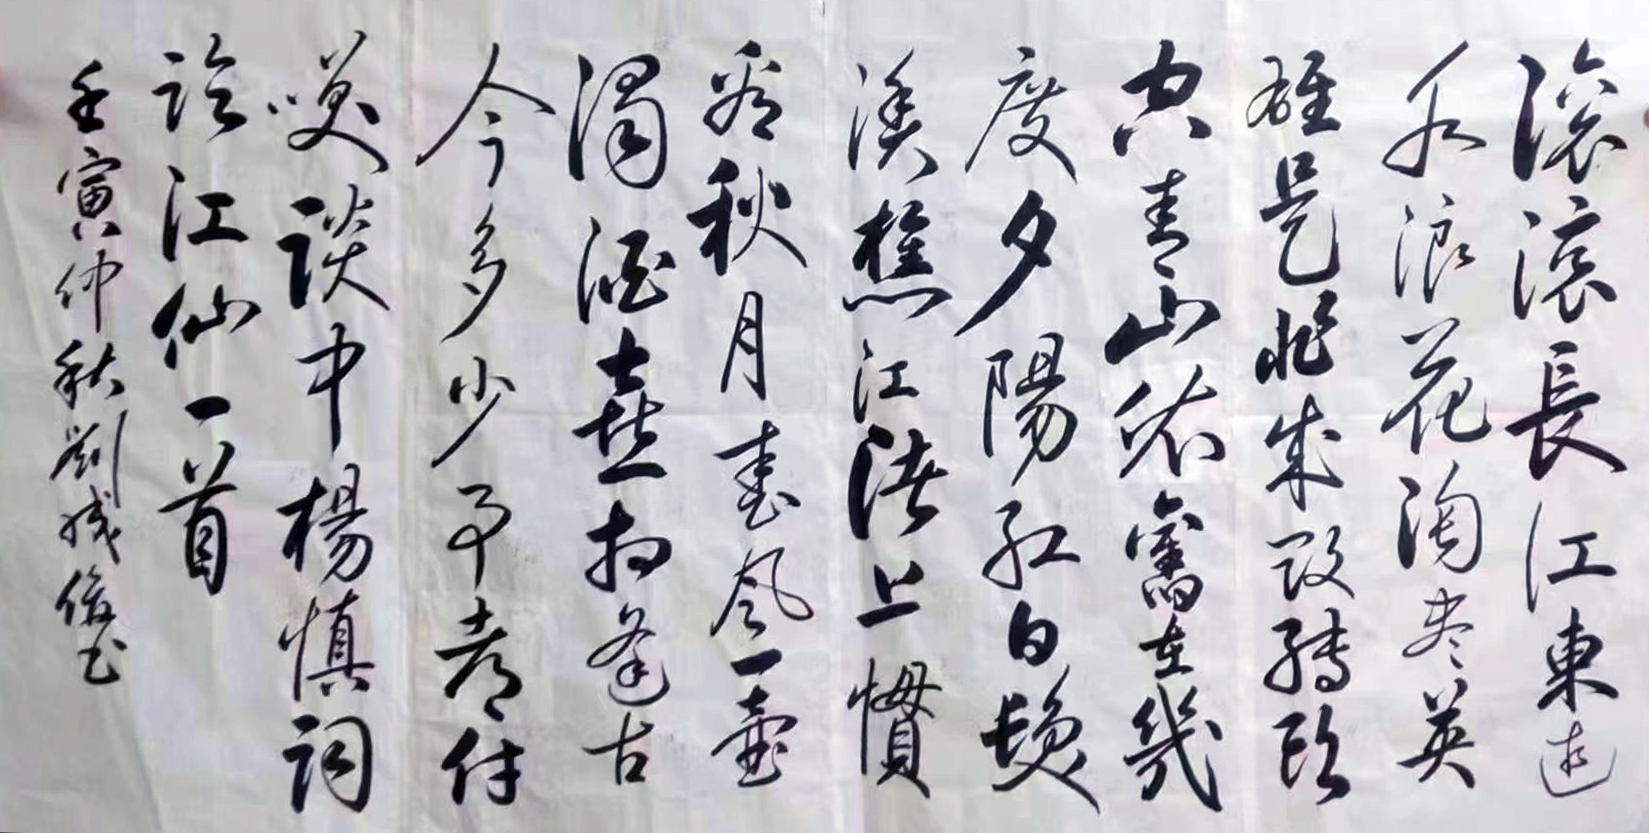 滾滾長江東逝
水浪花淘尽英
雄是非成敗轉頭
空青山依舊在幾
度夕陽紅白髮
漁樵江渚上慣
看秋月春風一壺
濁酒喜相逢古
今多少事都付
笑談中楊慎詞
臨江仙一首
壬寅仲秋劉俊书